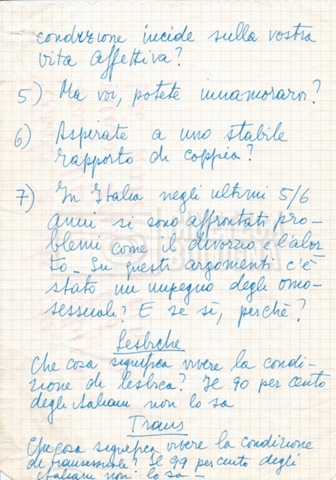 condizione incide sulla vostra
vita affettiva?
5) Ma voi, potete innamorarvi?
6) Aspirate a uno stabile
rapporto di coppia?
7) In Italia negli ultimi 5/6
anni si sono affrontati pro-
blemi come il divorzio e l'abor-
to - Su questi argomenti c'è
stato un impegno degli omo-
sessuali? E se sì, perché?
Lesbiche
Che cosa significa vivere la condi-
zione di lesbica? Il 90 per cento
degli italiani non lo sa
Trans
Che cosa significa vivere la condizione
di transessuale? Il 99 per cento degli
italiani non lo sa -